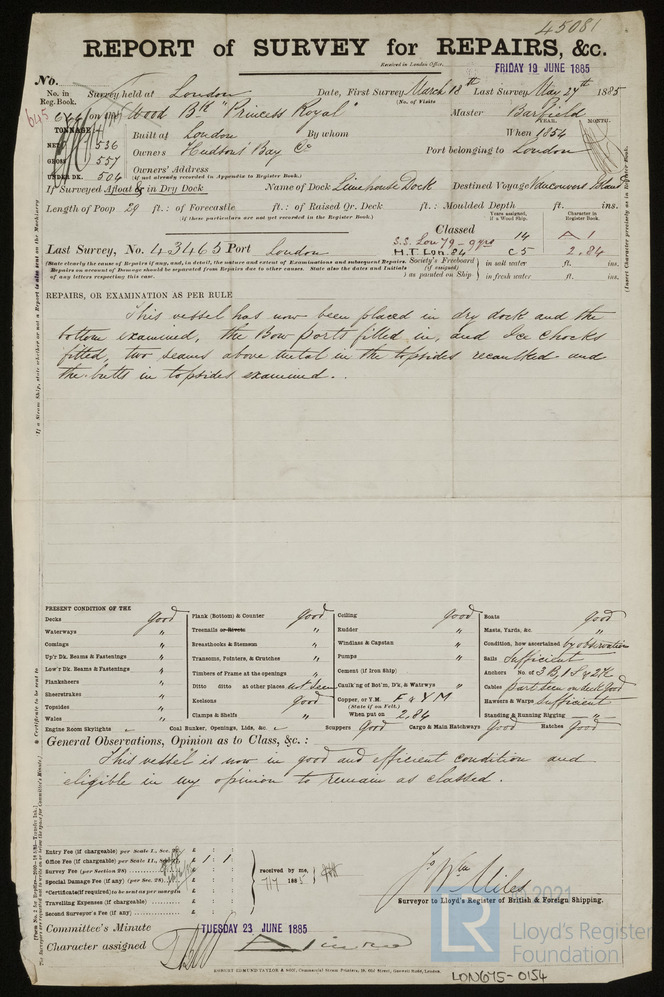 45081
REPORT of SURVEY for REPAIRS, &c.
Received in London Office,
FRIDAY 19 JUNE 1885
No.
No. in Reg. Book.
Survey held at London Date, First Survey March 18th Last Survey May 27th 1885
(No. of Visits
645
on the Wood Bk "Princess Royal" Master Barfield
TONNAGE
YEAR. MONTH.
Built at London By whom When 1854
NET 536
GROSS 557
Owners Hudsons' Bay Co Port belonging to London
UNDER DK. 504
Owners' Address
(if not already recorded in Appendix to Register Book.)
If Surveyed Afloat & in Dry Dock Name of Dock Limehouse Dock Destined Voyage Vancouvers Island
Length of Poop 29 ft.: of Forecastle ft.: of Raised Qr. Deck ft.: Moulded Depth ft. ins.
(if these particulars are not yet recorded in the Register Book.)
Years assigned, if a Wood Ship.
Character in Register Book.
Classed 14 A 1
Last Survey, No. 43465 Port London
S.S. Lon 79-9yrs
H.T. Lon. 84 C 5 2.84
Society's Freeboard (if assigned) as painted on Ship
in salt water ft. ins.
in fresh water ft. ins.
(State clearly the cause of Repairs if any, and, in detail, the nature and extent of Examinations and subsequent Repairs.
Repairs on account of Damage should be separated from Repairs due to other causes. State also the dates and Initials
of any letters respecting this case.
(Insert Character precisely as in Register Book.
REPAIRS, OR EXAMINATION AS PER RULE
This vessel has now been placed in dry dock and the
bottom examined, the Bow ports filled in, and Ice chocks
fitted, two seams above metal in the topsides recaulked and
the butts in topsides examined.
PRESENT CONDITION OF THE
Decks good
Waterways "
Comings "
Up'r Dk. Beams & Fastenings "
Low'r Dk. Beams & Fastenings "
Planksheers "
Sheerstrakes "
Topsides "
Wales "
Engine Room Skylights
Plank (Bottom) & Counter good
Treenails or Rivets "
Breasthooks & Stemson "
Transoms, Pointers, & Crutches "
Timbers of Frame at the openings "
Ditto ditto at other places not seen
Keelsons Good
Clamps & Shelfs "
Coal Bunker, Openings, Lids, &c.
Ceiling good
Rudder "
Windlass & Capstan "
Pumps "
Cement (if Iron Ship)
Caulk'ng of Bot'm, D'k, & Watrwys "
Copper, or Y.M. F & Y M
(State if on Felt.)
When put on 2,84
Scuppers Good Cargo & Main Hatchways Good Hatches Good
Boats good
Masts, Yards, &c. "
Condition, how ascertained by observation
Sails Sufficient
Anchors No. of 3 B, 1 S & 2 K
Cables part seen on deck Good
Hawsers & Warps Sufficient
Standing & Running Rigging
General Observations, Opinion as to Class, &c.:
This vessel is now in good and efficient condition and
eligible in my opinion to remain as classed.
Entry Fee (if chargeable) per Scale I., Sec. £ : :
Office Fee (if chargeable) per Scale II., £ 1 : 1 :
Survey Fee (per Section 28) £ : :
Special Damage Fee (if any) (per Sec. 28) £ : :
*Certificate (if required) to be sent as per margin
Travelling Expenses (if chargeable) £ : :
Second Surveyor's Fee (if any) £ : :
received by me,
7/7 1885
Wm Miles
Surveyor to Lloyd's Register of British & Foreign Shipping.
Committee's Minute TUESDAY 23 JUNE 1885
Character assigned A 1
ROBERT EDMUND TAYLOR & SON, Commercial Steam Printers, 19, Old Street, Goswell Road, London.
© 2021
LR
Lloyd's Register
Foundation
LON675-0154